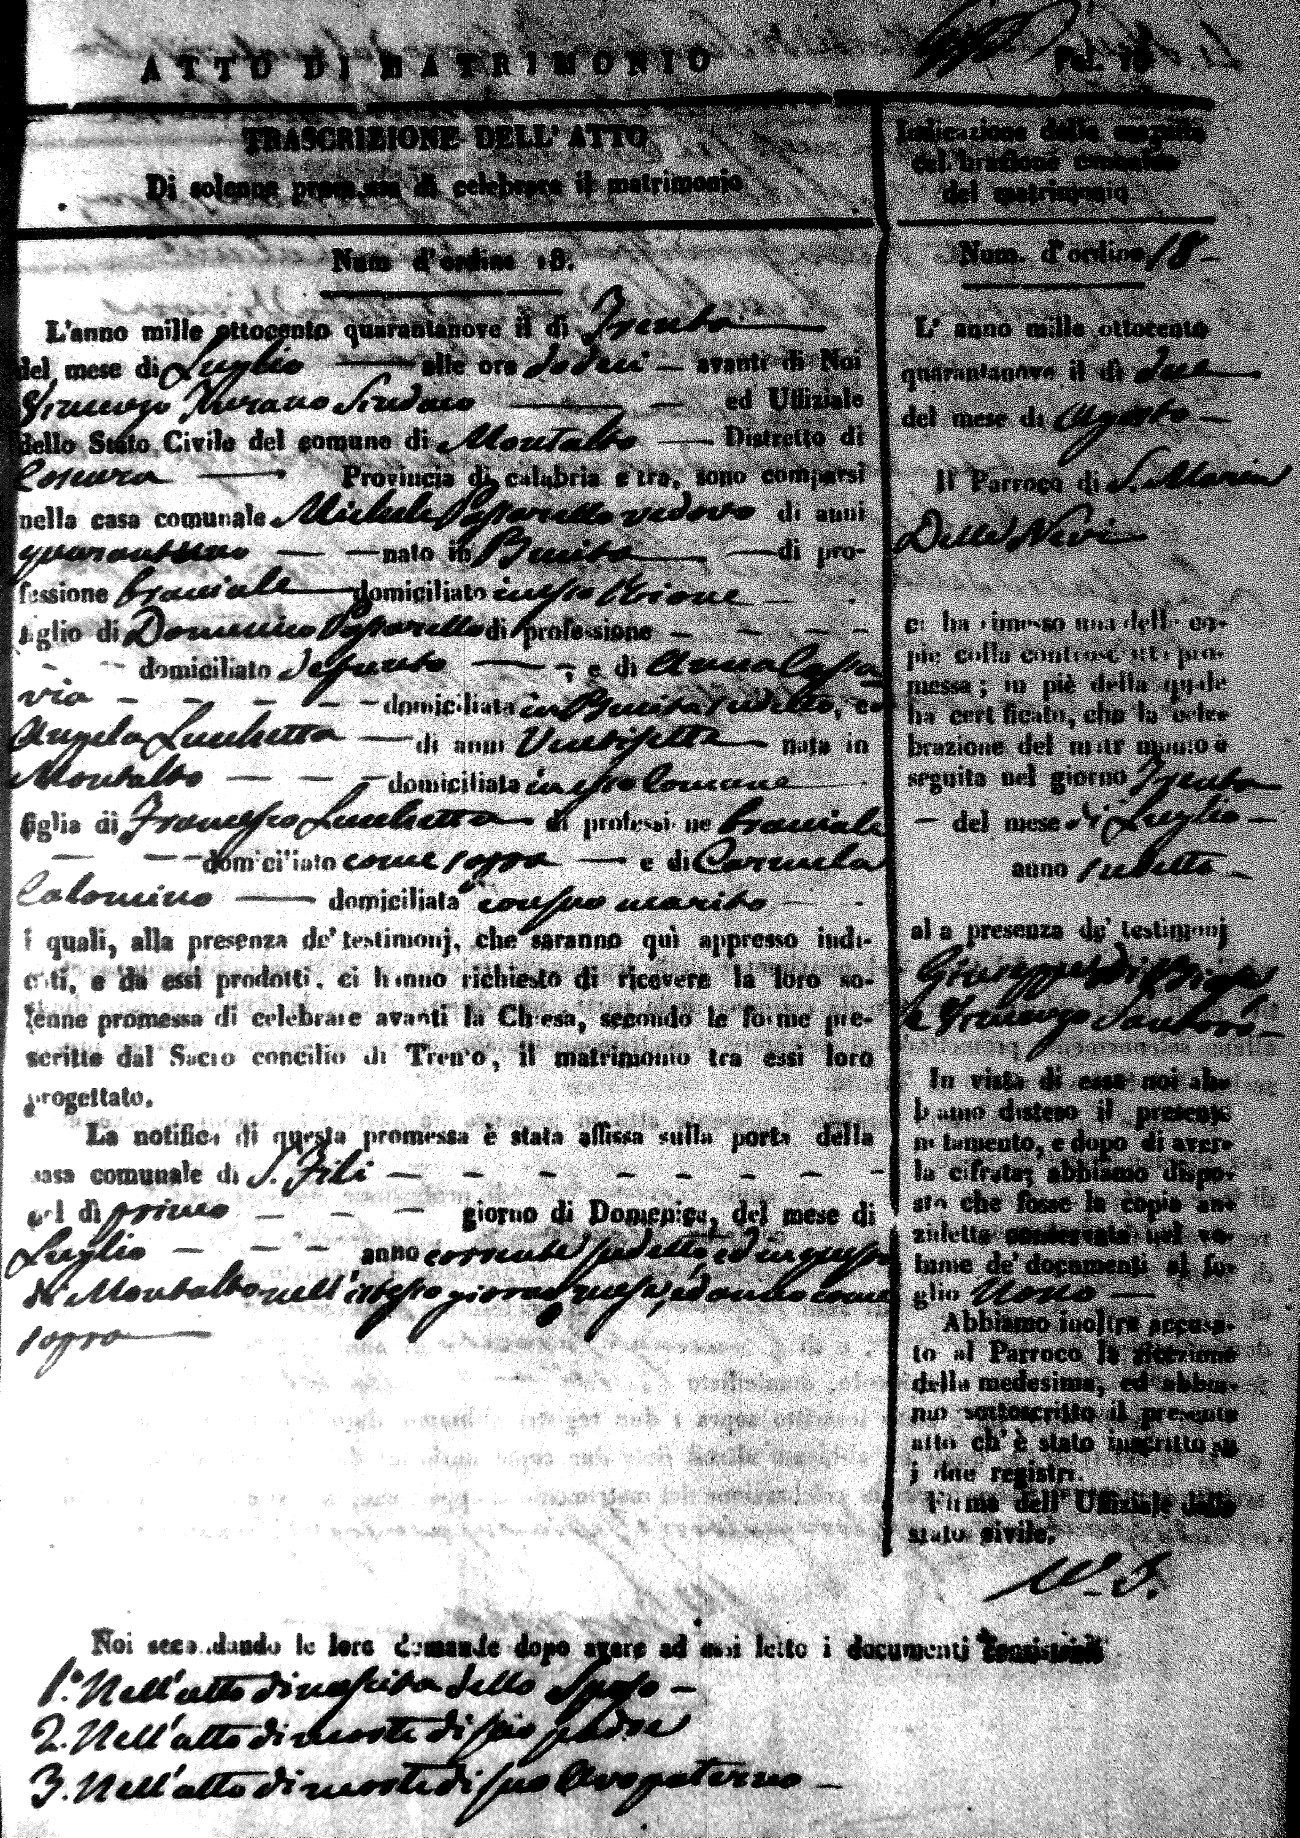 ATTO DI MATRIMONIO
Fol.
TRASCRIZIONE DELL' ATTO
Di solenne promessa di celebrare il matrimonio
Num d'ordine 18.
L'anno mille ottocento quarantanove il dì Trenta
del mese di Luglio alle ore dodeci avanti di Noi
Vincenzo Sindaco ed Uffiziale
dello Stato Civile del comune di Montalto Distretto di
Cosenza Provincia di calabria citra, sono comparsi
nella casa comunale Michele vedovo di anni
quarantuno nato in di pro-
fessione bracciale domiciliato in esso
figlio di Domenico di professione
domiciliato defunto e di Anna
via domiciliata in sudetto, ed
Angela Lucchetta di anni Ventisette nata in
Montalto domiciliata in esso Comune
figlia di Francesco Lucchetta di professione bracciale
domiciliato come sopra e di Carmela
Calomino domiciliata con suo marito
i quali, alla presenza de' testimonj, che saranno quì appresso indi-
cati, e da essi prodotti, ci hanno richiesto di ricevere la loro so-
lenne promessa di celebrare avanti la Chiesa, secondo le forme pre-
scritte dal Sacro concilio di Trento, il matrimonio tra essi loro
progettato.
La notifica di questa promessa è stata affissa sulla porta della
casa comunale di S. Fili
nel dì primo giorno di Domenica, del mese di
Luglio anno corrente sudetto, ed in questa
di Montalto nell'istesso giorno, mese, ed anno come
sopra
Indicazione della seguita
celebrazione canonica
del matrimonio
Num. d'ordine 18
L' anno mille ottocento
quarantanove il dì due
del mese di Agosto
Il Parroco di S. Maria
Delle Nevi
ci ha rimesso una delle co-
pie colla controscritta pro-
messa; in piè della quale
ha certificato, che la cele-
brazione del matrimonio è
seguita nel giorno Trenta
del mese di Luglio
anno sudetto
alla presenza de' testimonj
Giuseppe di
e Vincenzo Santoro
In vista di essa noi ab-
biamo disteso il presente
notamento, e dopo di aver-
la cifrata; abbiamo dispo-
sto che fosse la copia an-
zidetta conservata nel vo-
lume de' documenti al fo-
glio Nono
Abbiamo inoltre accusa-
to al Parroco la ricezione
della medesima, ed abbia-
mo sottoscritto il presente
atto ch' è stato inscritto su
i due registri.
Firma dell' Uffiziale dello
stato civile.
Noi secondando le loro domande dopo avere ad essi letto i documenti consistenti
1.° Nell'atto di nascita dello Sposo
2. Nell'atto di morte di suo padre
3. Nell'atto di morte di suo Avo paterno